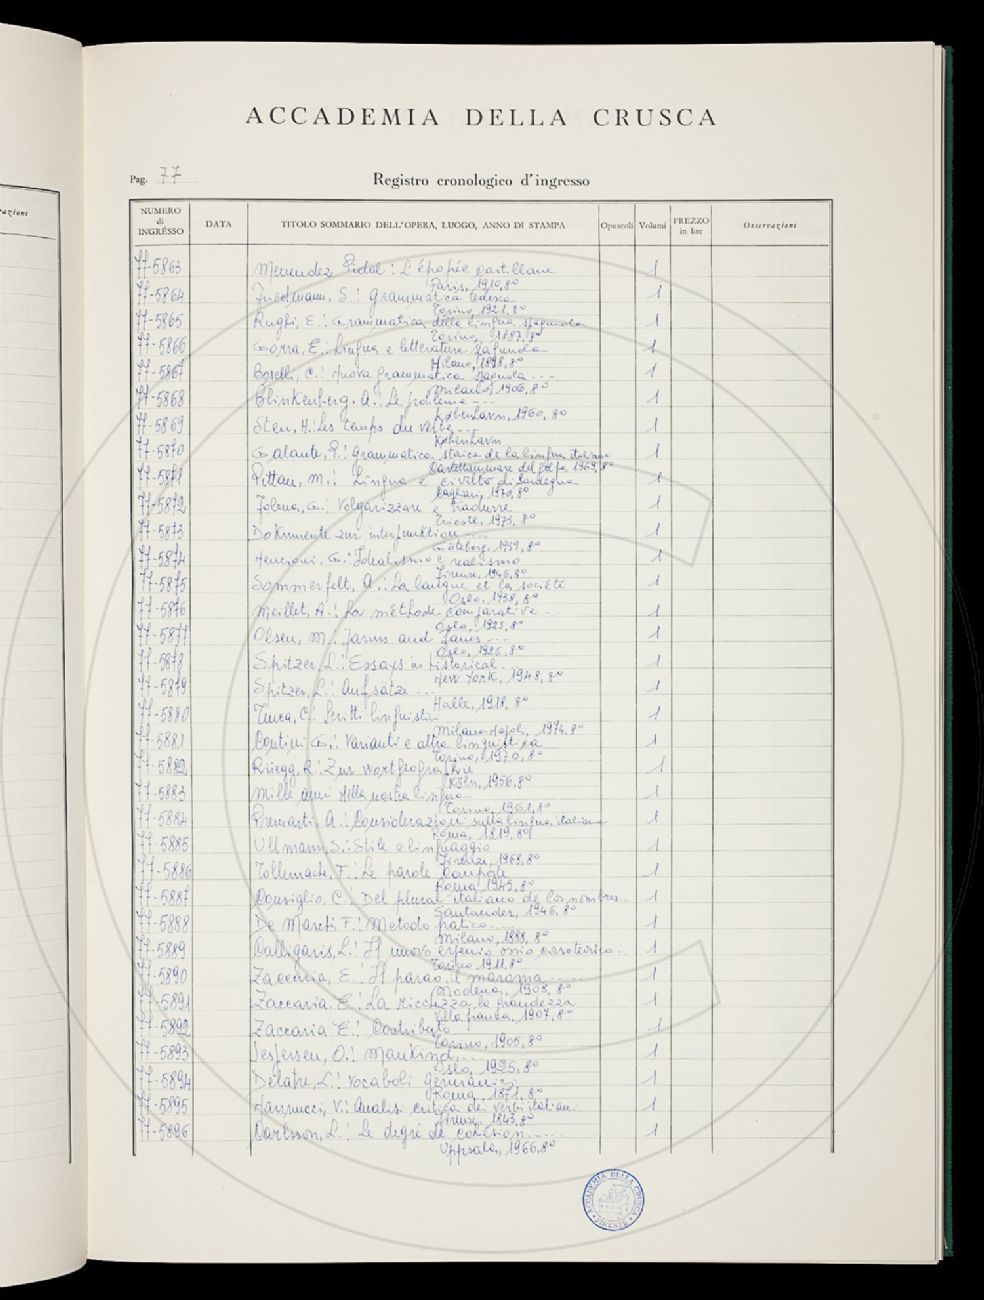 ACCADEMIA DELLA CRUSCA
Pag. 77
Registro cronologico d'ingresso
NUMERO di INGRESSO DATA TITOLO SOMMARIO DELL'OPERA, LUOGO, ANNO DI STAMPA Opuscoli Volumi PREZZO in lire Osservazioni
77-5863 Menendez Pidal: L'épopée castillane 1
Paris, 1910, 8°
77-5864 Friedmann, S.: Grammatica tedesca 1
Torino, 1921, 8°
77-5865 E.: Grammatica della lingua spagnola 1
Torino, 1887, 8°
77-5866 Gorra, E.: Lingua e letteratura spagnola 1
Milano, 1898, 8°
77-5867 Boselli, C.: Nuova grammatica spagnola --- 1
Milano, 1906, 8°
77-5868 Blinkenberg. A.: Le problème --- 1
København, 1960, 8°
77-5869 Sten, H.: Les temps du verbe --- 1
København
77-5870 Galante, P.: Grammatica storica de la lingua italiana 1
Castellammare del golfo, 1969, 8°
77-5871 Pittau, M.: Lingua e civiltà di Sardegna 1
Cagliari, 1970, 8°
77-5872 Folena, G.: Volgarizzare e tradurre 1
Trieste, 1973, 8°
77-5873 Dokumente zur interpunktion --- 1
Göteborg, 1939, 8°
77-5874 Nencioni, G.: Idealismo e realismo 1
Firenze, 1946, 8°
77-5875 Sommerfelt, A.: La langue et la société 1
Oslo, 1938, 8°
77-5876 Meillet, A.: La méthode comparative --- 1
Oslo, 1925, 8°
77-5877 Olsen, M.: Farms and fanes --- 1
Oslo, 1926, 8°
77-5878 Spitzer, L.: Essays in historical --- 1
New York, 1948, 8°
77-5879 Spitzer, L.: Aufsätze --- 1
Halle, 1918, 8°
77-5880 C.: Scritti linguistici 1
Milano-Napoli, 1974, 8°
77-5881 Contini G.: Varianti e altra linguistica 1
Torino, 1970, 8°
77-5882 Rüegg, R.: Zur wortgeographie 1
Köln, 1956, 8°
77-5883 Mille anni della nostra lingua 1
Torino, 1961, 8°
77-5884 A.: Considerazioni sulla lingua italiana 1
Roma, 1819, 8°
77-5885 Ullmann, S.: Stile e linguaggio 1
Firenze, 1968, 8°
77-5886 Tollemache, F.: Le parole composte 1
Roma 1945, 8°
77-5887 Consiglio, C.: Del plural italiano de los nombres --- 1
Santander, 1946, 8°
77-5888 F.: Metodo pratico --- 1
Milano, 1888, 8°
77-5889 Calligaris, L.: Il nuovo Erpenio ossia corso teorico --- 1
Torino 1911, 8°
77-5890 Zaccaria, E.: Il parao, il marama --- 1
Modena, 1908, 8°
77-5891 Zaccaria, E.: La ricchezza la grandezza 1
Villafranca, 1907, 8°
77-5892 Zaccaria E.: Contributo 1
Torino, 1905, 8°
77-5893 Jespersen, O.: Mankind --- 1
Oslo, 1925, 8°
77-5894 Delatre, L.: Vocaboli germanici 1
Roma, 1871, 8°
77-5895 Nannucci, V.: Analisi critica dei verbi italiani 1
Firenze, 1843, 8°
77-5896 Carlsson, L.: Le degré de cohésion --- 1
Uppsala, 1966, 8°
ACCADEMIA DELLA CRUSCA
FIRENZE